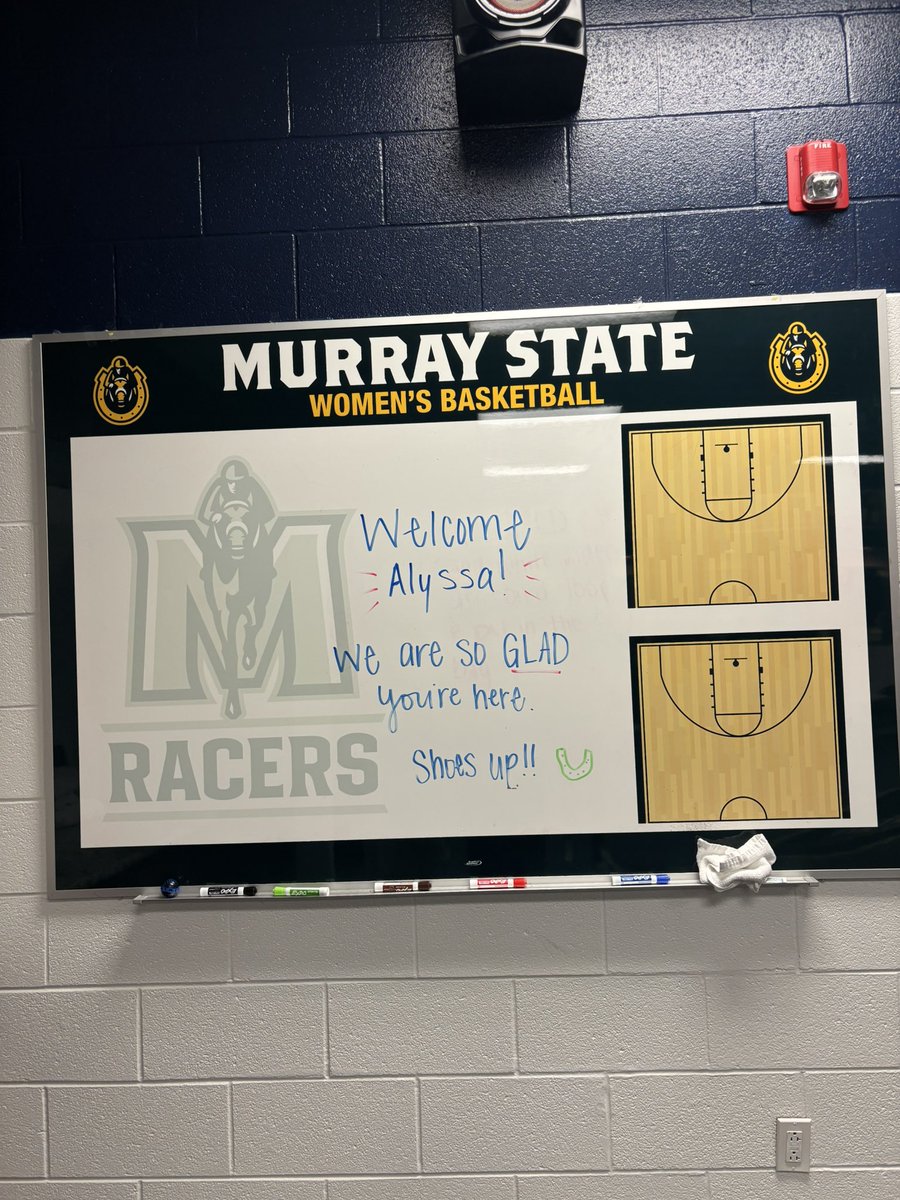 FIRE
MURRAY STATE
WOMEN'S BASKETBALL
Welcome
Alyssa!
We are so GLAD
you're here.
Shoes up!!
RACERS
EXPO
EXPO
EXPO
EXPO
EXPO